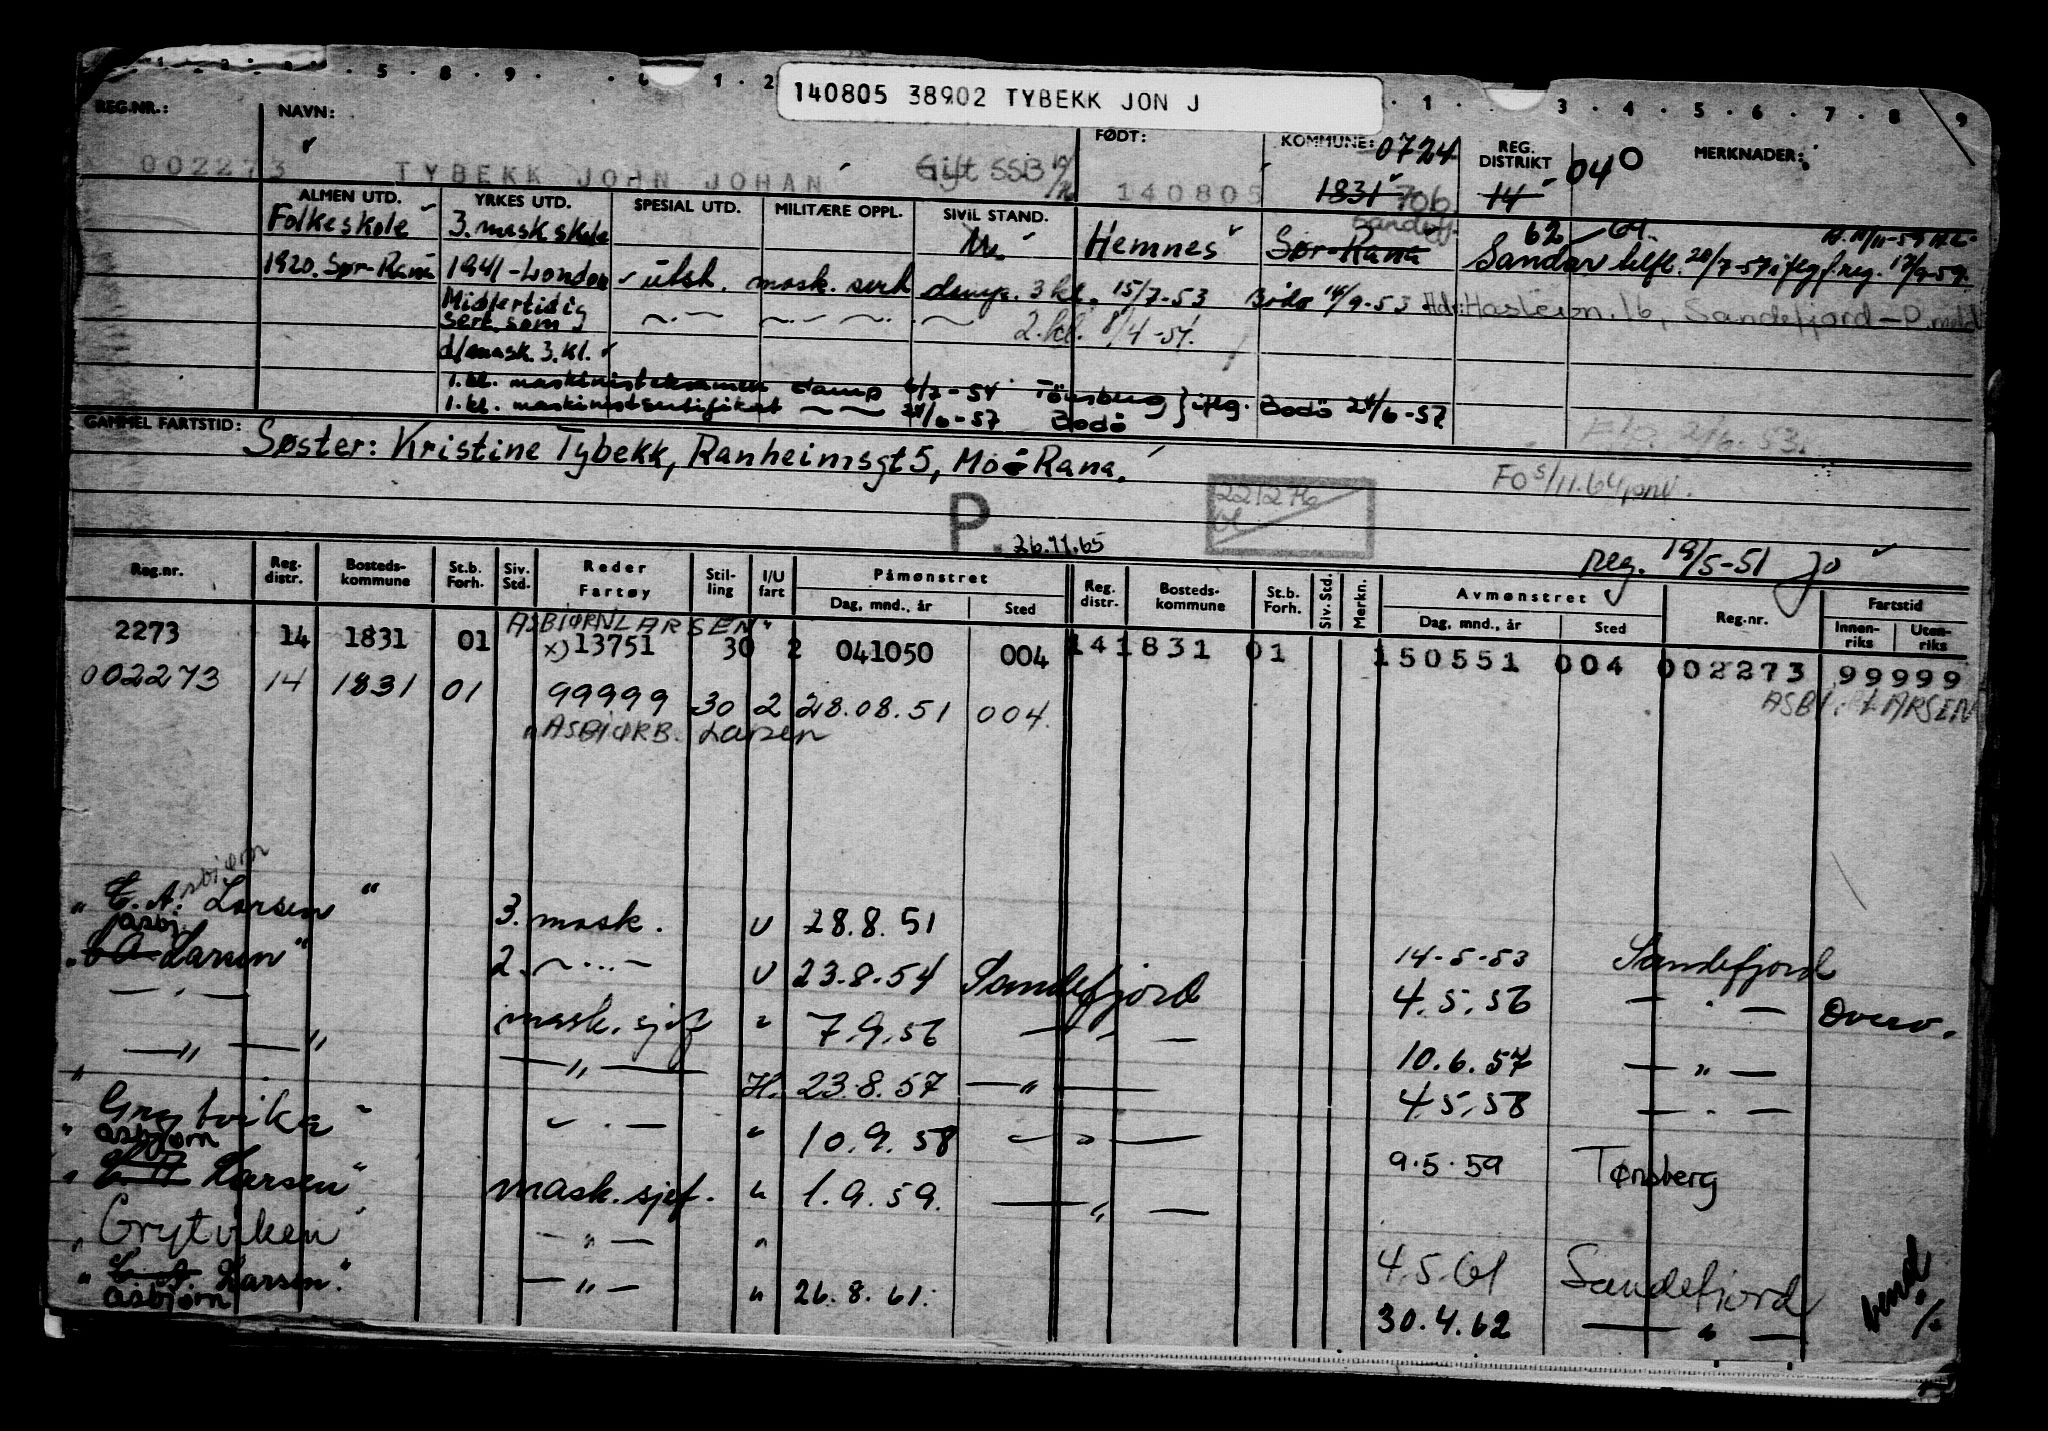 140805 38902 TYBEKK JON J
REG.NR.: NAVN: FØDT: KOMMUNE: 0724 REG. DISTRIKT 04 MERKNADER:
002273 TYBEKK JOHN JOHAN Gift SSB 140805 1831 706 14
ALMEN UTD. YRKES UTD. SPESIAL UTD. MILITÆRE OPPL. SIVIL STAND. Sandefj.
Folkeskole 3. mask skole Hemnes Sør-Rana Sandar
1920. Sør-Rana 1941-London utst. mask. sert damp. 3 kl. 15/7-53 Bodø 14/9-53 Haslevn. 16, Sandefjord
Midlertidig
sert. som 2. kl. 8/4-54.
d/mask. 3. kl.
1. kl. maskinisteksamen damp 4/2-54 Tönsberg
1. kl. maskinistsertifikat 24/6-57 Bodö Bodö 24/6-57
GAMMEL FARTSTID: Søster: Kristine Tybekk, Ranheimsgt 5, Mo i Rana.
FO 5/11.64
221276
P 26.11.65
reg. 19/5-51 Jo
Reg.nr. Reg. distr. Bosteds- kommune St.b. Forh. Siv. Std. Reder Fartøy Stil- ling I/U fart Påmønstret Dag, mnd., år Sted Reg. distr. Bosteds- kommune St.b. Forh. Siv. Std. Merkn. Avmønstret Dag, mnd., år Sted Reg.nr. Fartstid Innen- riks Uten- riks
ASBIØRN LARSEN"
2273 14 1831 01 x) 13751 30 2 041050 004 14 1831 01 150551 004 002273 99999
002273 14 1831 01 99999 30 2 28.08.51 004.
"ASBIØRB. Larsen
asbiørn
" C. A. Larsen " 3. mask. U 28.8.51 14-5-53 Sandefjord
asbj.
" Larsen " 2. — " — U 23.8.54 Sandefjord 4.5.56 — " — Overv.
— " — mask. sjef " 7.9.56 — " — 10.6.57 — " —
— " — " — " — H. 23.8.57 — " — 4.5.58 — " —
" Grytviken " — " — " 10.9.58 — " — 9.5.59 Tønsberg
asbjørn
" Larsen " mask. sjef. " 1.9.59. — " —
" Grytviken " — " — " 4.5.61 Sandefjord
" Larsen " — " — " 26.8.61. 30.4.62 — " —
asbjørn